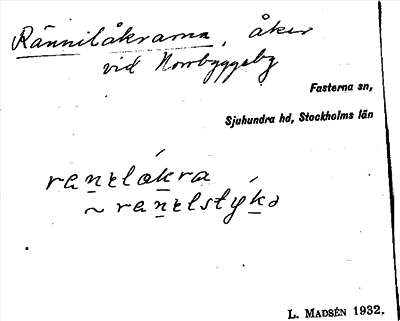 Rännilåkrarna, åker
vid Norrbyggeby
Fasterna sn,
Sjuhundra hd, Stockholms län
ranelåkra
~ ranelstýkə
L. MADSÉN 1932.